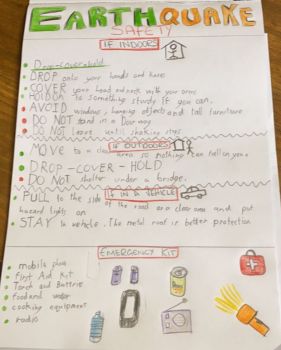 EARTHQUAKE
SAFETY
IF INDOORS
Drop-cover-hold
DROP onto your hands and knees
COVER your head and neck with your arms
HOLD ON to something sturdy if you can.
AVOID windows, hanging objects and tall furniture
DO NOT stand in a Doorway
DO NOT leave until shaking stops
IF OUTDOORS
MOVE to a clear area so nothing can fall on you
DROP-COVER-HOLD
DO NOT shelter under a bridge.
IF IN A VEHICLE
PULL to the side of the road or a clear area and put
hazard lights on
STAY in vehicle. The metal roof is better protection
EMERGENCY KIT
mobile phone
First Aid Kit
Torch and Batteries
food and water
cooking equipment
radio